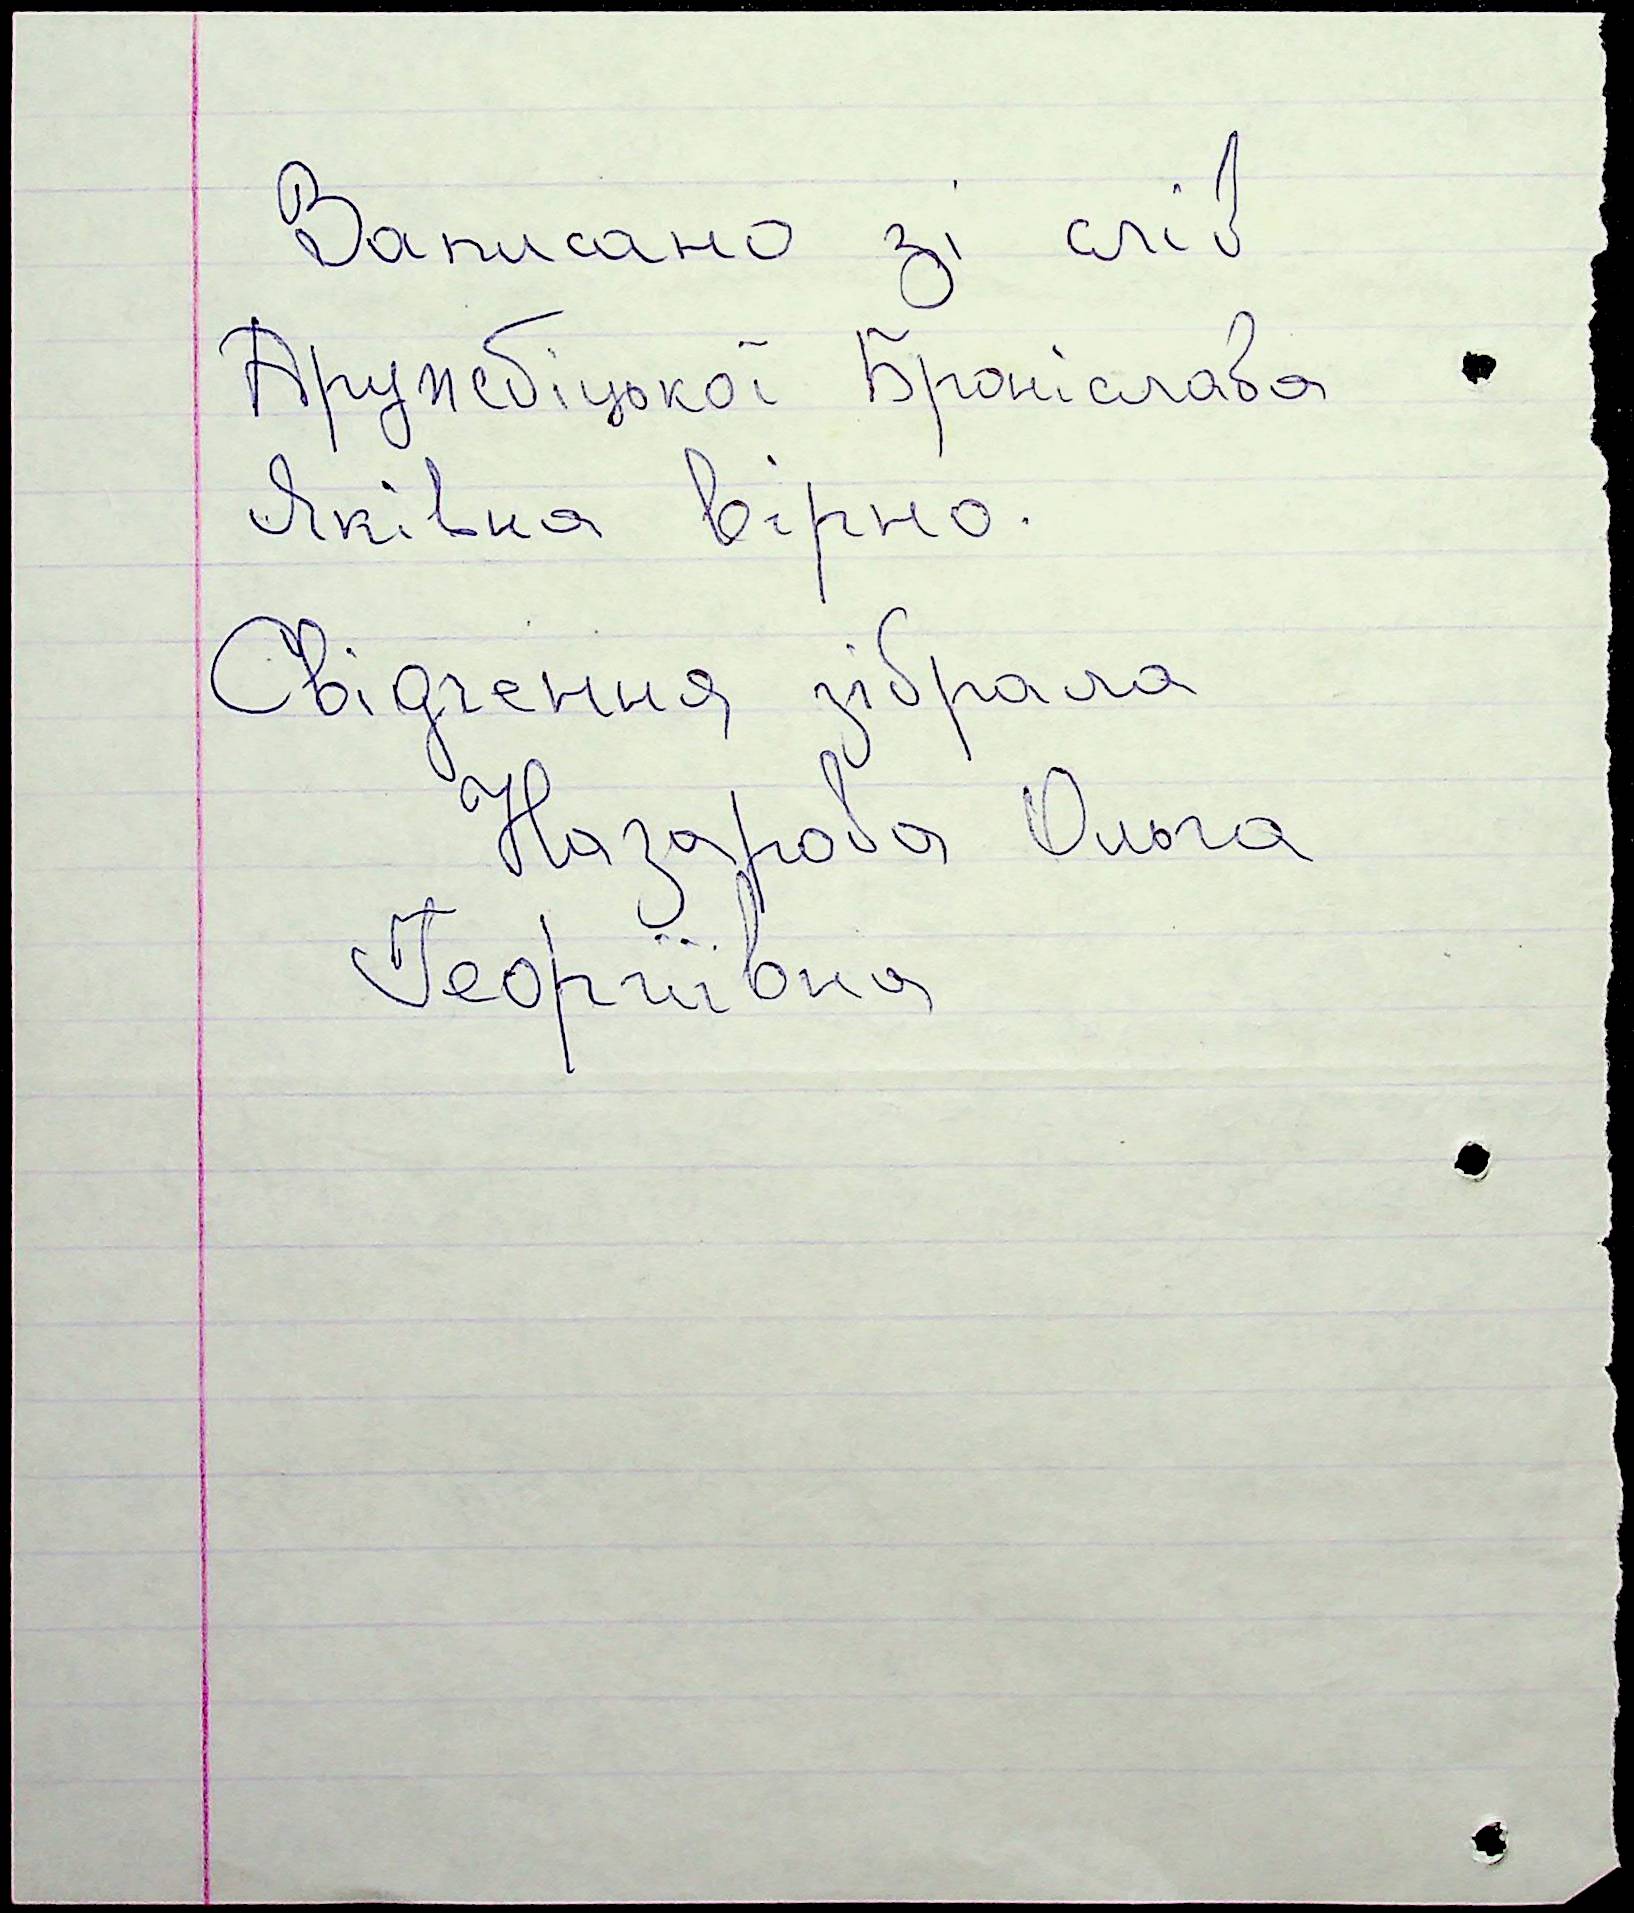 Записано зі слів
Дружебіцької Броніслава
Яківна вірно.
Свідчення зібрала
Назарова Ольга
Георгіївна